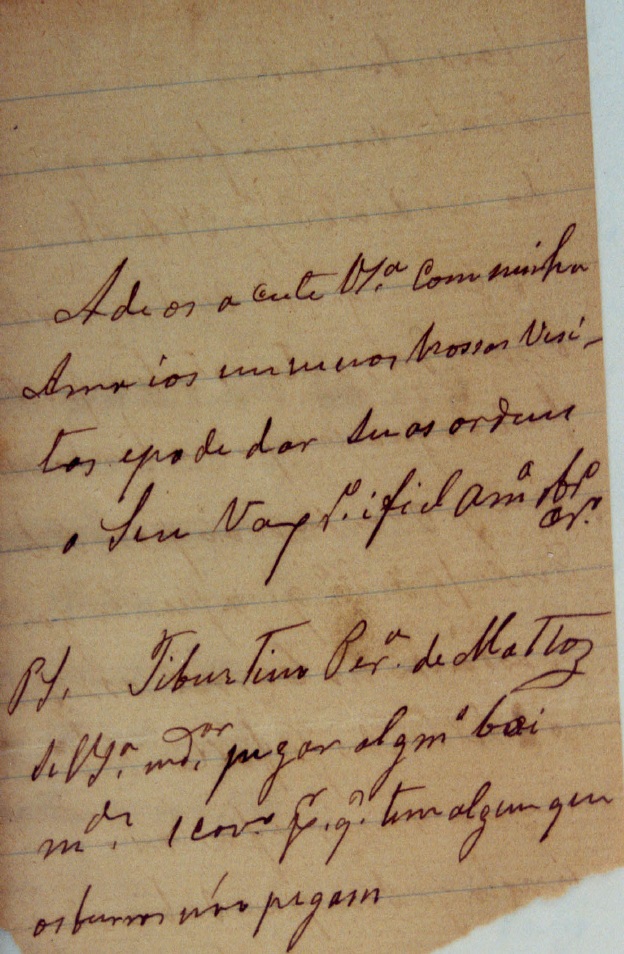 Adeos aceite VSª. Com minha
Ama ios meninos Nossas Visi-
tas epode dar suas ordens
o Seu Vaqrº. ifiel Amº obrº
crº.
PS. Tiburtino Perª. de Mattos
se VSª. mdar. pegar algmª boi
mde. 1 cavº pr. q. tem algum que
os burros não pegam